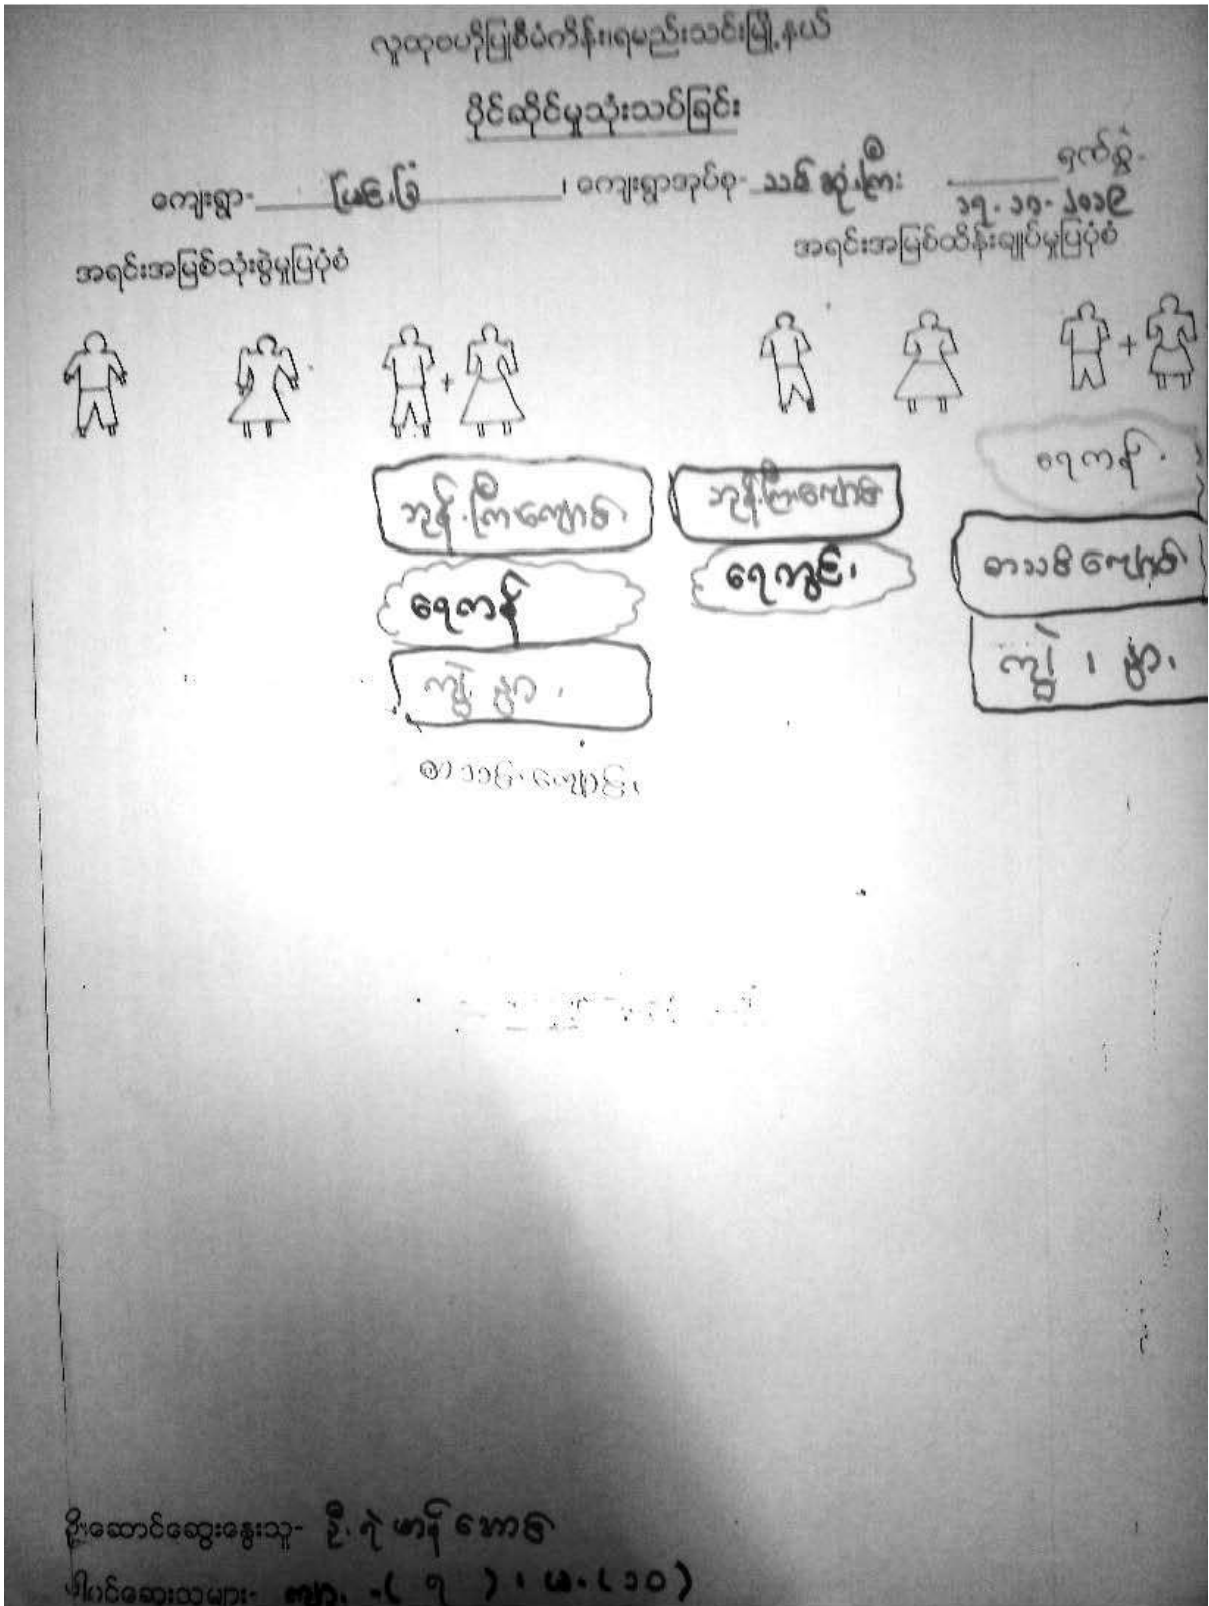 လူထုဗဟိုပြုစီမံကိန်း၊ရမည်းသင်းမြို့နယ်
ပိုင်ဆိုင်မှုသုံးသပ်ခြင်း
ကျေးရွာ- မြင်းခြံ ၊ ကျေးရွာအုပ်စု- သစ်ဆုံကြီး ရက်စွဲ-
၁၇.၁၁.၂၀၁၉
အရင်းအမြစ်သုံးစွဲမှုပြပုံစံ အရင်းအမြစ်ထိန်းချုပ်မှုပြပုံစံ
+ +
ရေကန်
ဘုန်းကြီးကျောင်း ဘုန်းကြီးကျောင်း
ရေကန် ရေတွင်း စာသင်ကျောင်း
ကျွဲ၊ နွား ကျွဲ၊ နွား
စာသင်ကျောင်း
ဦးဆောင်ဆွေးနွေးသူ- ဦးရဲမာန်အောင်
ပါဝင်ဆွေးသူများ- ကျား-(၇)၊ မ-(၁၀)